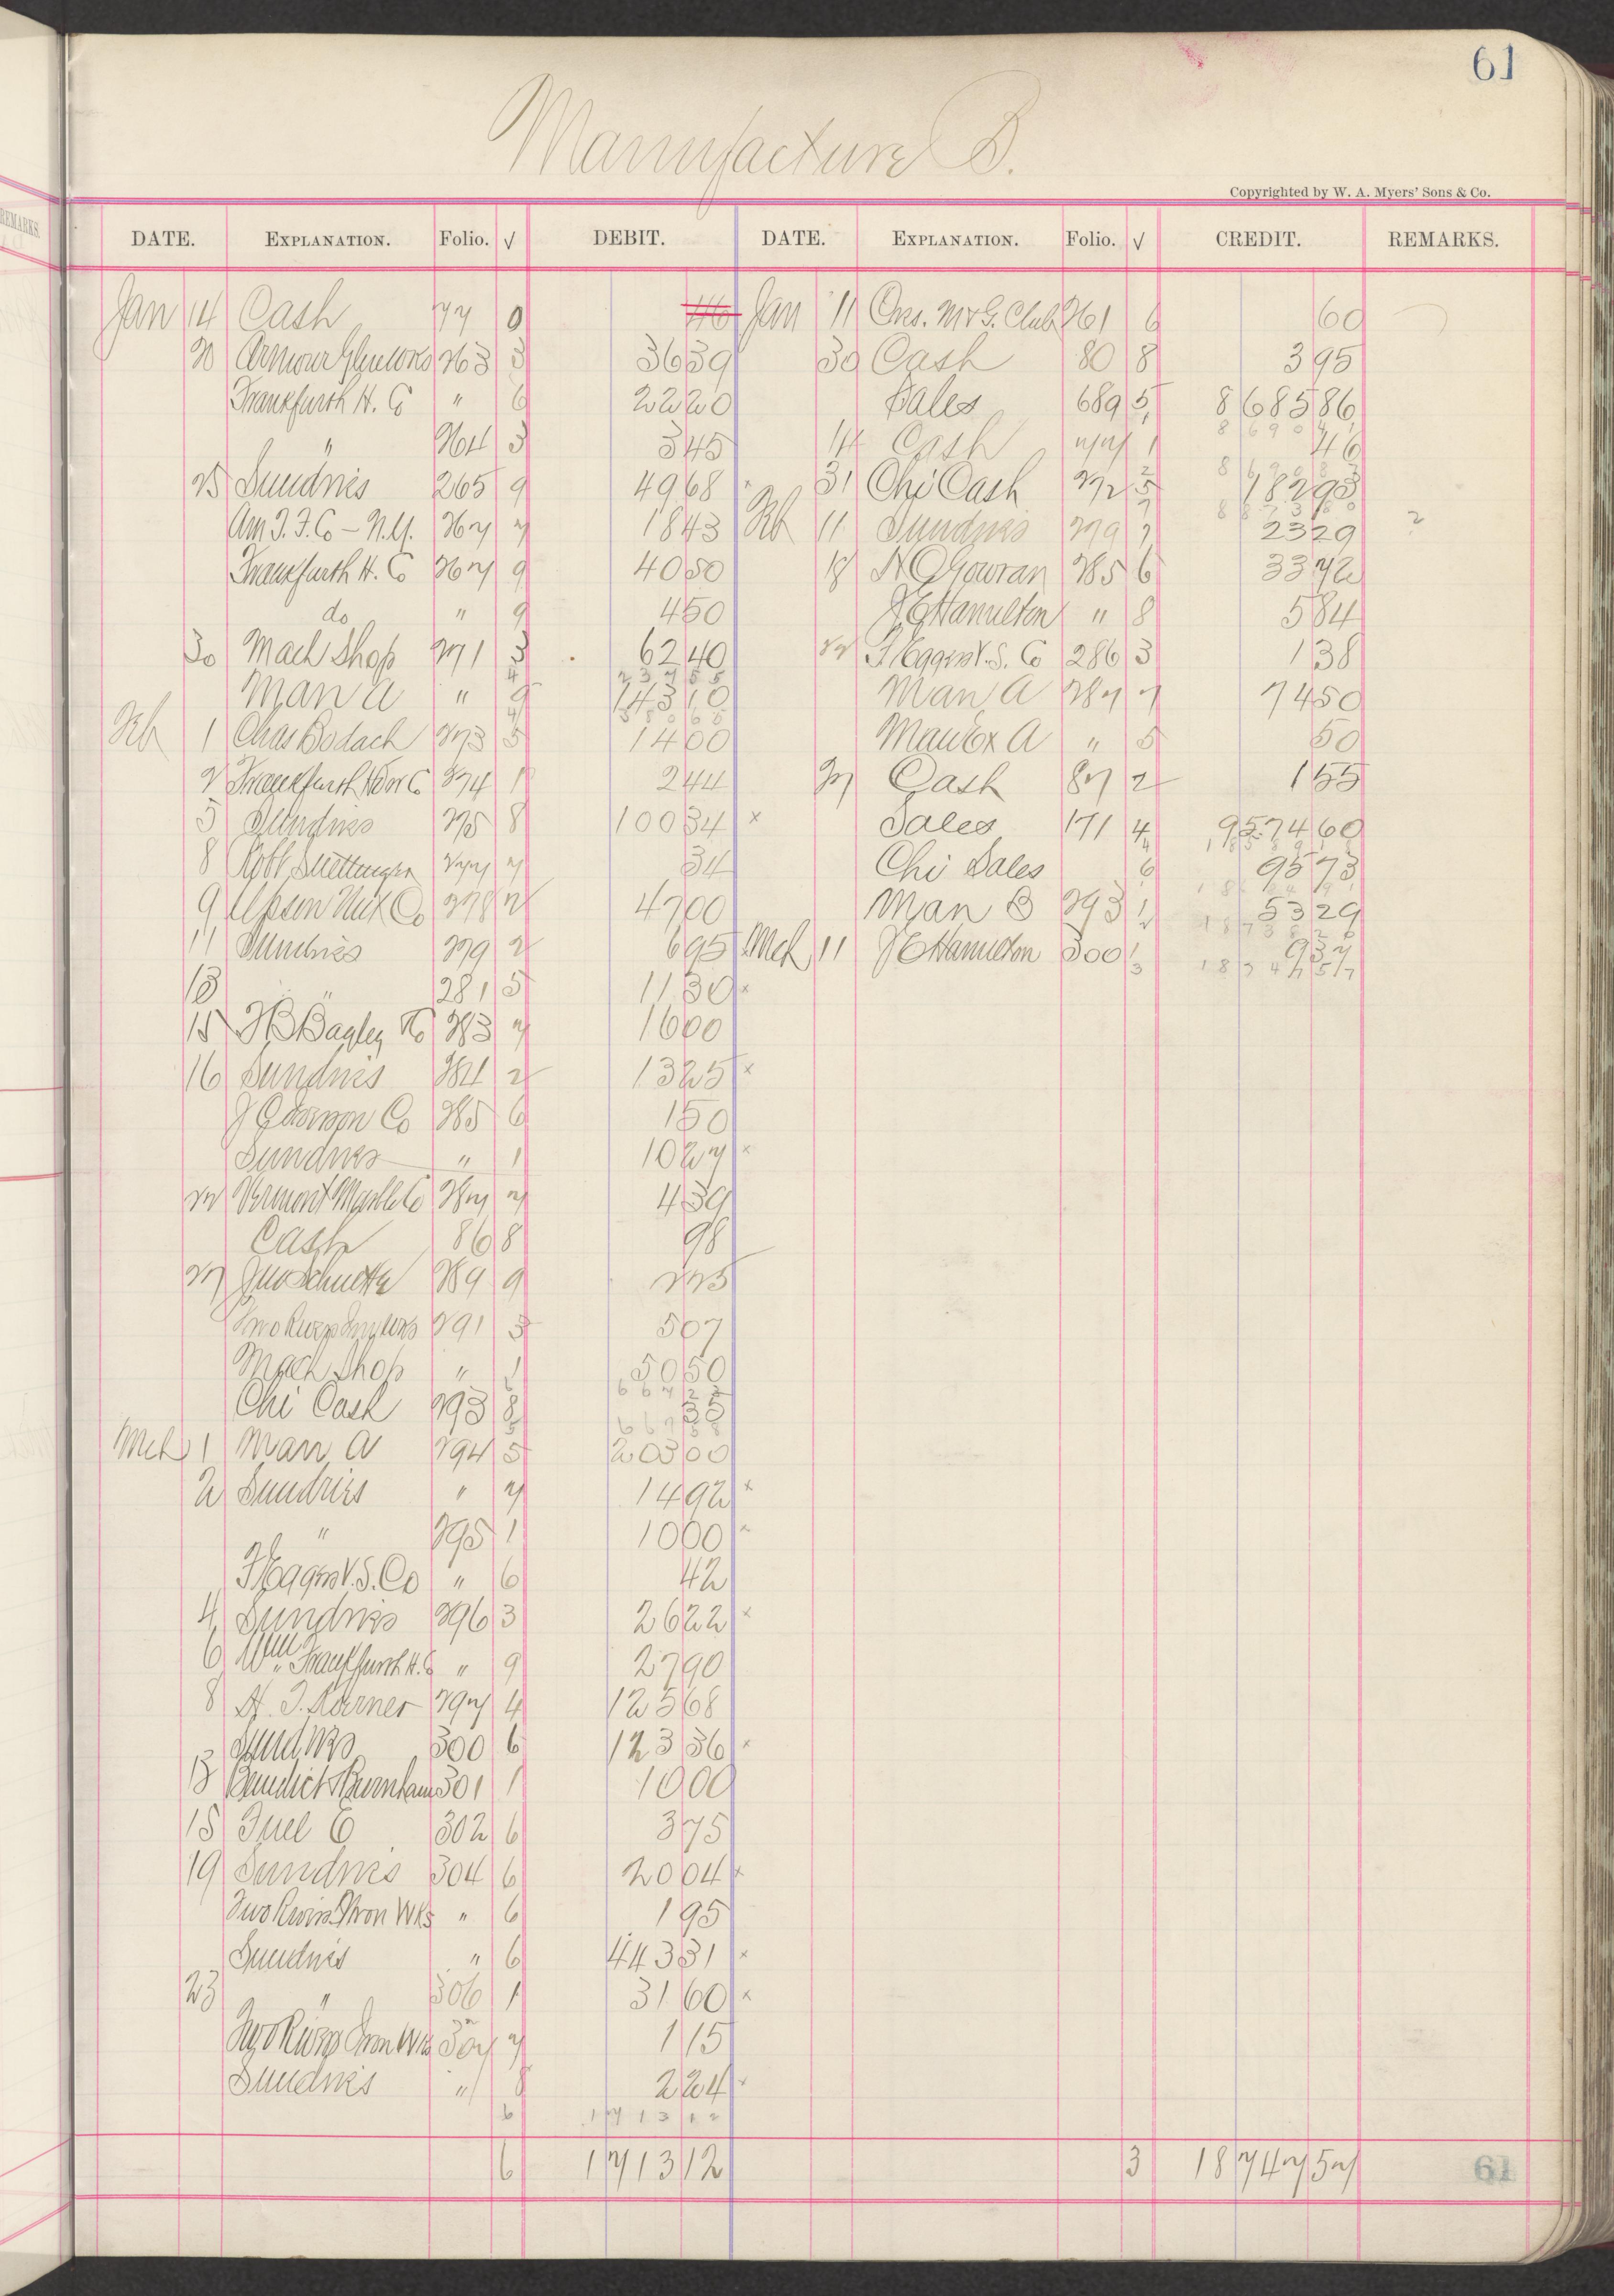 61
Manufacture B.
Copyrighted by W. A. Myers' Sons & Co.
DATE. EXPLANATION. Folio. √ DEBIT. DATE. EXPLANATION. Folio. √ CREDIT. REMARKS.
Jan 14 Cash 77 0 46 Jan 11 Cons. M & G. Club 261 6 60
20 Armour Glue Works 263 3 36 39 30 Cash 80 8 3 95
Frankfurth H. Co " 6 22 20 Sales 689 5 8685 86
" 264 3 3 45 14 Cash 77 1 46
25 Sundries 265 9 49 68 31 Chi Cash 272 5 182 93
Am. T. F. Co - N.Y. 267 7 18 43 Feb 11 Sundries 279 7 23 29
Frankfurth H. Co 267 9 40 50 18 285 6 33 72
do " 9 4 50 Hamilton " 8 5 84
30 Mach Shop 271 3 62 40 22 V. S. Co 286 3 1 38
Man A " 9 143 10 Man A 287 7 74 50
Feb 1 Chas Bodach 273 5 14 00 Man Ex A " 5 50
2 Frankfurth Hdw Co 274 1 2 44 27 Cash 87 2 1 55
5 Sundries 275 8 100 34 x Sales 171 4 9574 60
8 Robt 277 7 34 Chi Sales 6 95 73
9 Nut Co 278 2 47 00 Man B 293 1 53 29
11 Sundries 279 2 6 95 Mch 11 Hamilton 300 1 9 37
13 " 281 5 11 30 x
15 Bagley Co 283 7 16 00
16 Sundries 284 2 13 25 x
Co 285 6 1 50
Sundries " 1 10 27 x
22 Vermont Marble Co 287 7 4 39
Cash 86 8 98
27 Schuette 289 9 2 25
Two Rivers Iron Wks 291 3 5 07
Mach Shop " 1 50 50
Chi Cash 293 8 35
Mch 1 Man A 294 5 203 00
2 Sundries " 7 14 92 x
" 295 1 10 00 x
V. S. Co " 6 42
4 Sundries 296 3 26 22 x
6 Wm Frankfurth H. Co " 9 27 90
8 A. T. 297 4 125 68
Sundries 300 6 123 36 x
13 Benedict & Burnham 301 1 10 00
15 Fuel C 302 6 3 75
19 Sundries 304 6 20 04 x
Two Rivers Iron Wks " 6 1 95
Sundries " 6 443 31 x
23 " 306 1 31 60 x
Two Rivers Iron Wks 307 7 1 15
Sundries " 8 2 24 x
6 1713 12
6 1713 12 3 18747 57
61